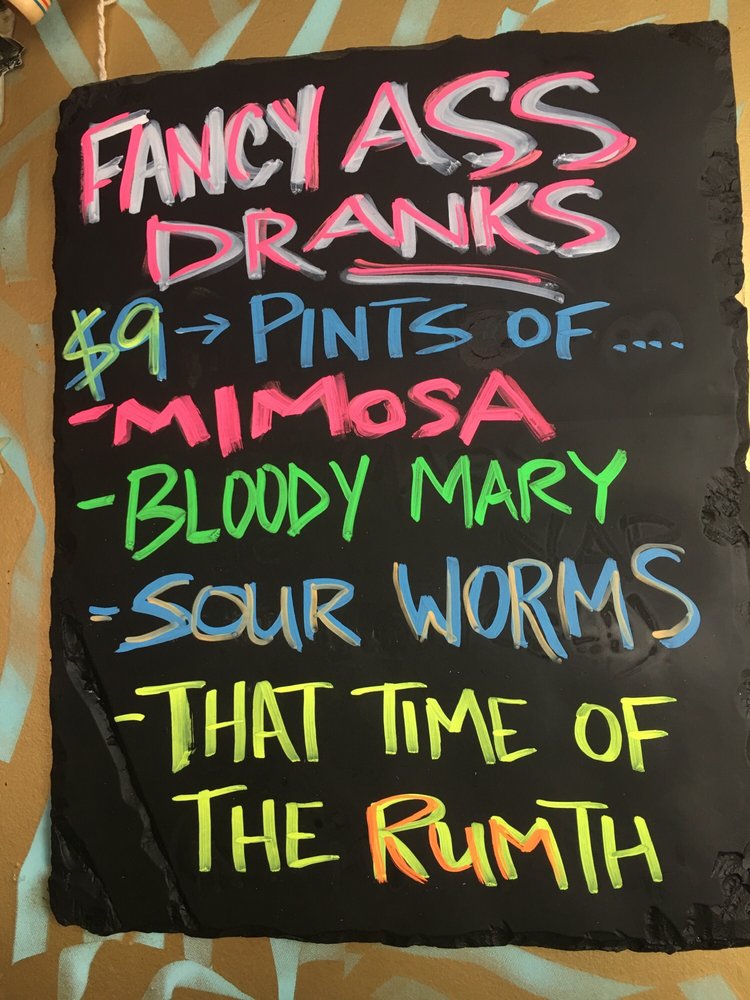 FANCY ASS
DRANKS
$9 → PINTS OF....
- MIMOSA
- BLOODY MARY
- SOUR WORMS
- THAT TIME OF
THE RUMTH